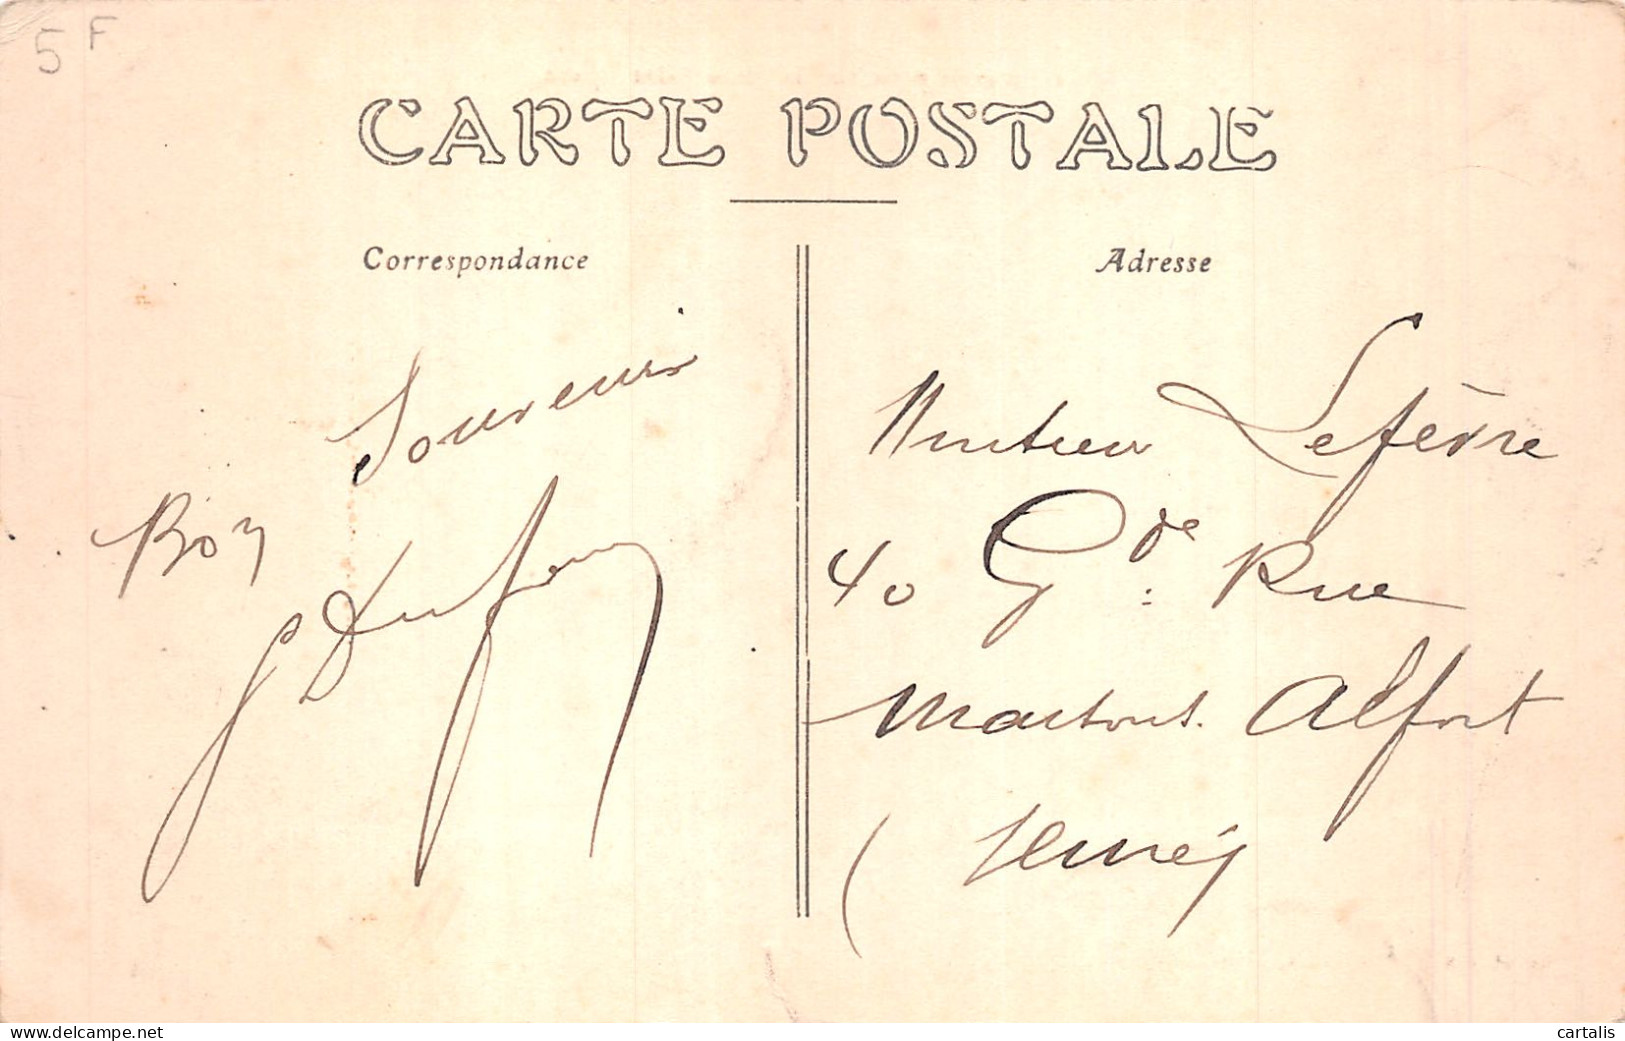 5 F
CARTE POSTALE
Correspondance
Bon Souvenir
G Dufour
Adresse
Monsieur Lefèvre
40 Gde Rue
Maisons Alfort
(Seine)
www.delcampe.net
cartalis